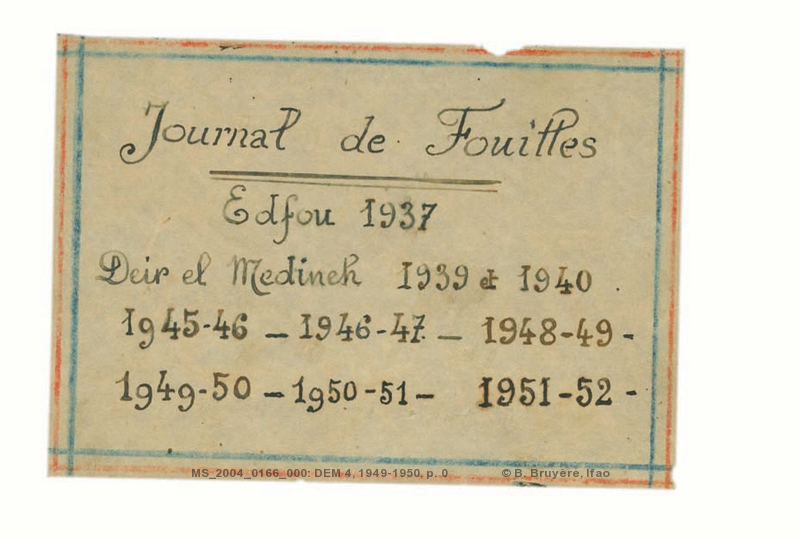 Journal de Fouilles
Edfou 1937
Deir el Medineh 1939 et 1940.
1945-46 – 1946-47 – 1948-49 -
1949-50 – 1950-51 – 1951-52 -
MS_2004_0166_000: DEM 4, 1949-1950, p. 0 © B. Bruyère, Ifao